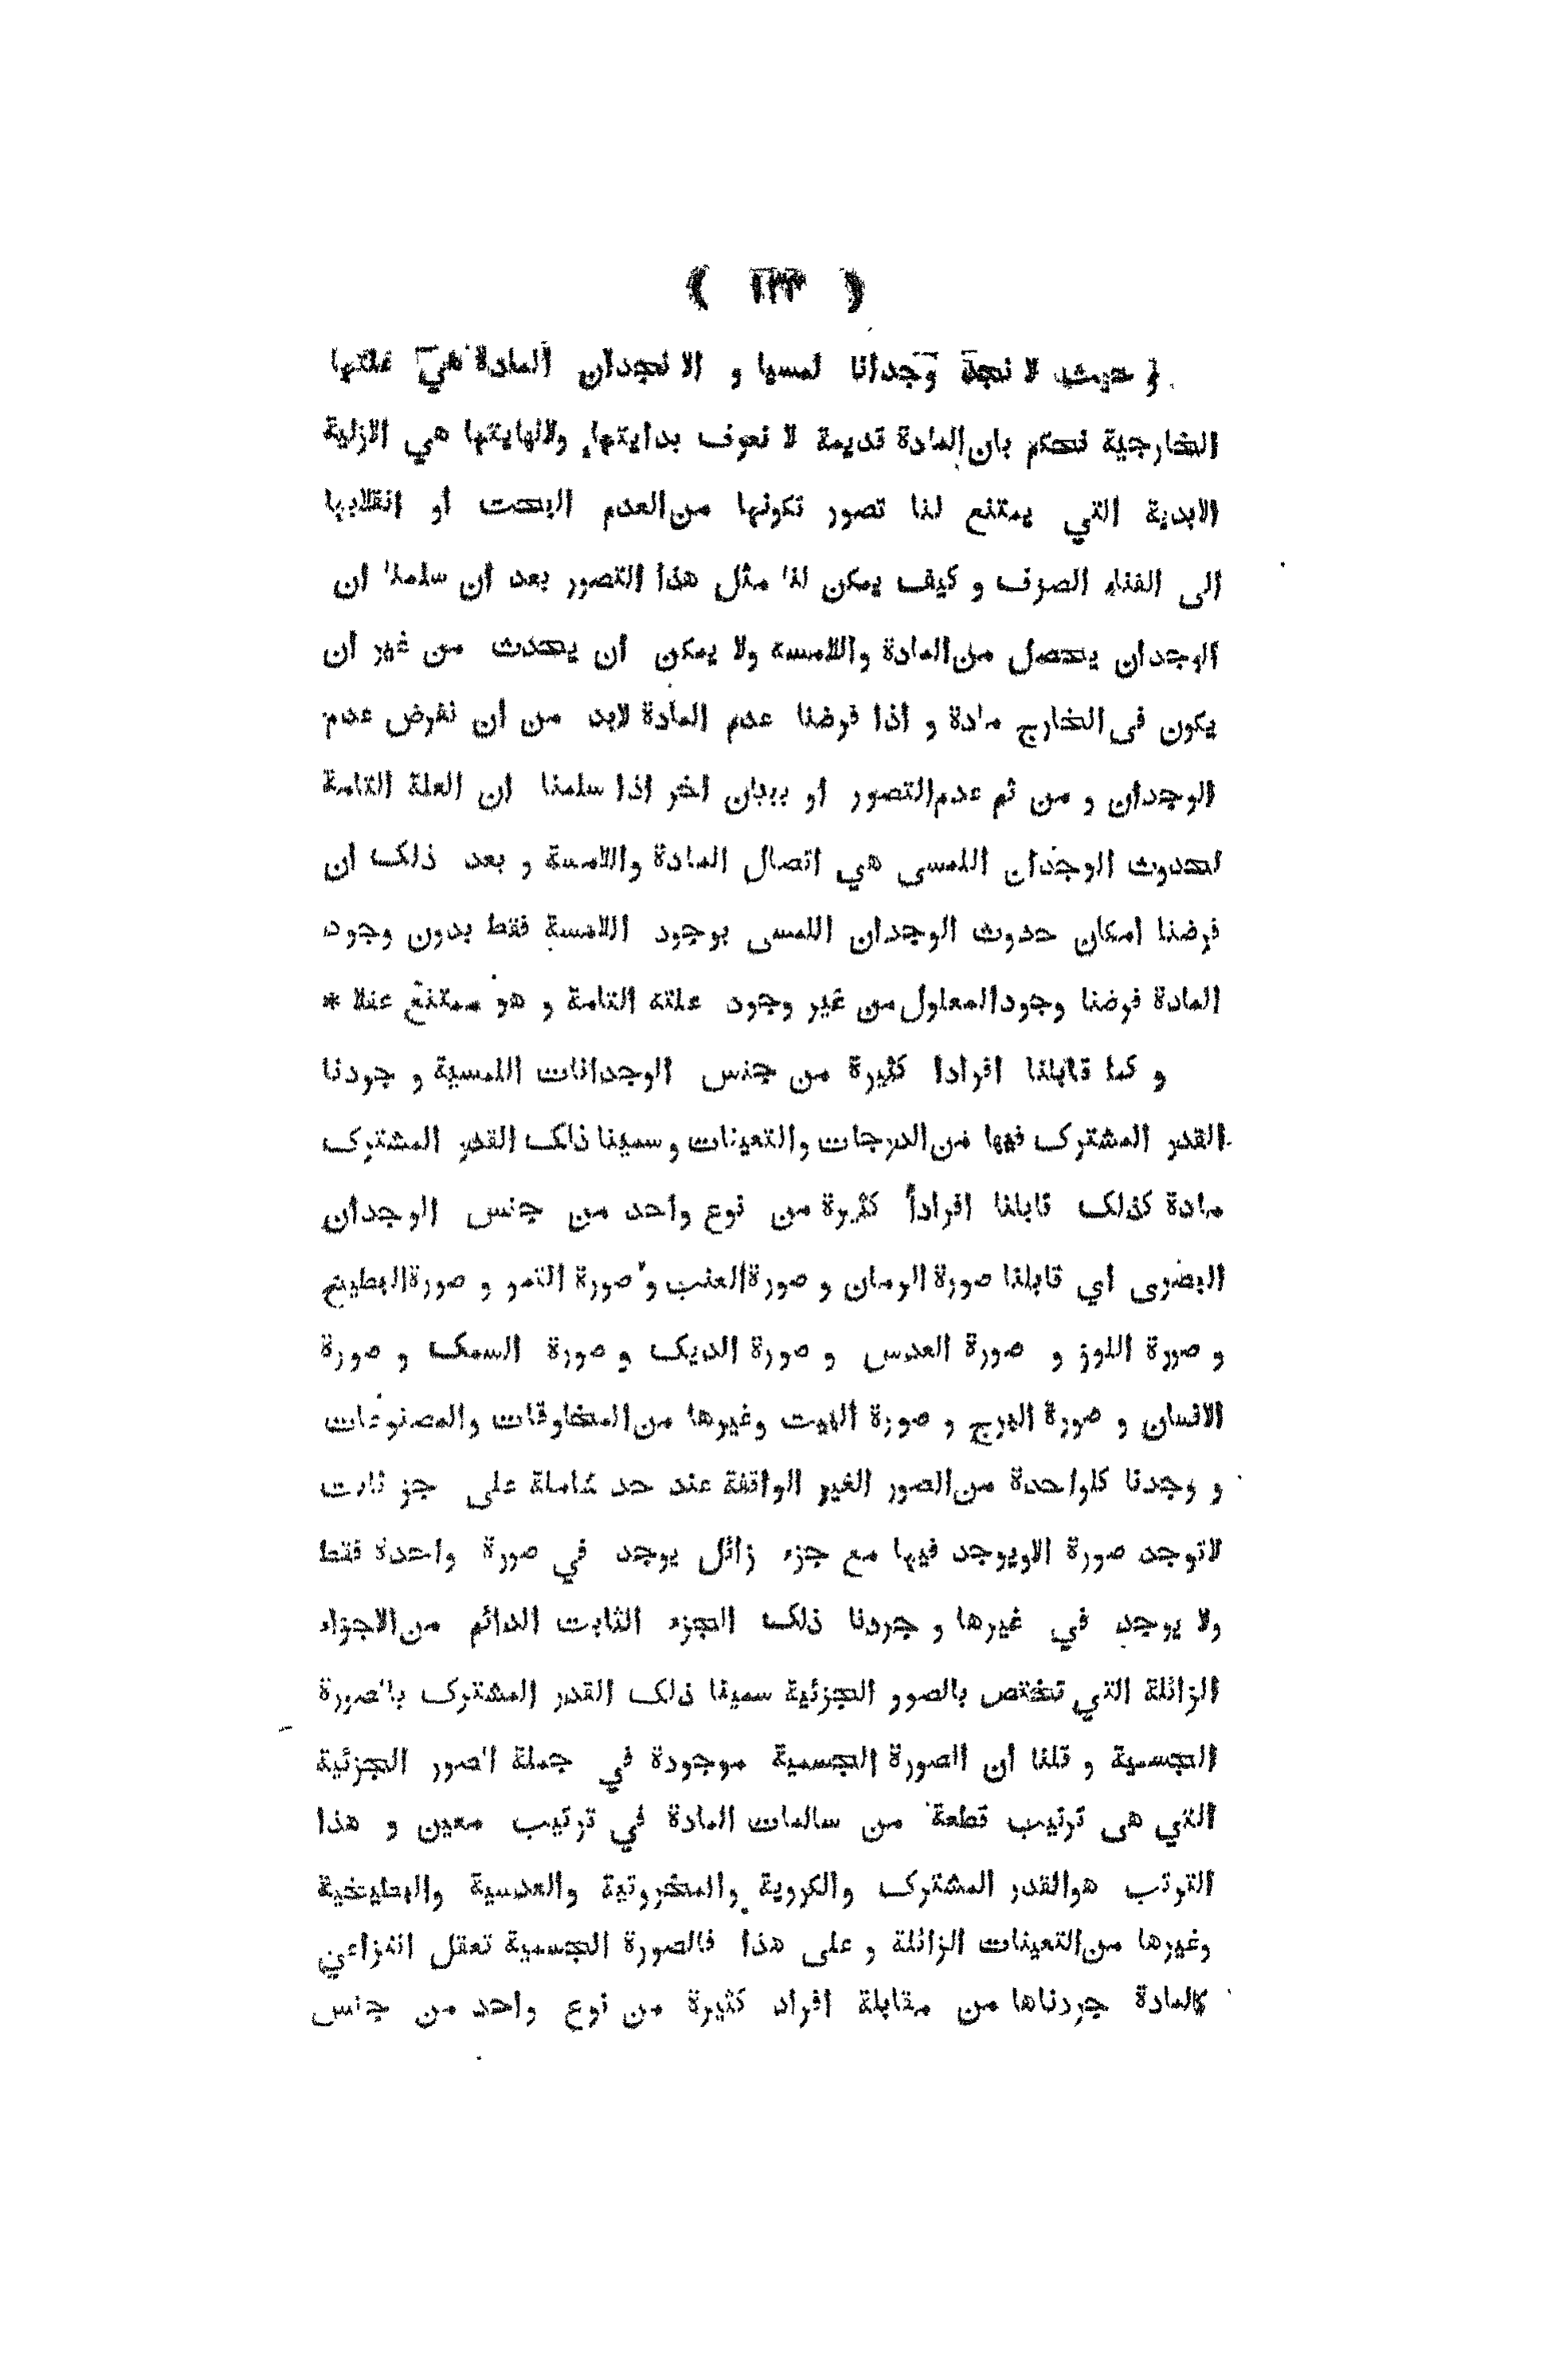 ( ١٣٣ )
و حيث لا نجد وجدانا لمسيا و الا نجدان المادة هي علتها
الخارجية نحكم بان المادة قديمة لا نعرف بدايتها ولانهايتها هي الازلية
الابدية التي يمتنع لنا تصور تكونها من العدم البحت أو انقلابها
الى الفناء الصرف و كيف يمكن لنا مثل هذا التصور بعد أن سلمنا ان
الوجدان يحصل من المادة واللامسة ولا يمكن أن يحدث من غير أن
يكون فى الخارج مادة و اذا فرضنا عدم المادة لابد من أن نفرض عدم
الوجدان و من ثم عدم التصور او ببيان اخر اذا سلمنا ان العلة التامة
لحدوث الوجدان اللمسى هي اتصال المادة واللامسة و بعد ذلك ان
فرضنا امكان حدوث الوجدان اللمسى بوجود اللامسة فقط بدون وجود
المادة فرضنا وجود المعلول من غير وجود علته التامة و هو ممتنع عقلا *
و كما قابلنا افرادا كثيرة من جنس الوجدانات اللمسية و جردنا
القدر المشترك فيها من الدرجات والتعينات و سمينا ذلك القدر المشترك
مادة كذلك قابلنا افراداً كثيرة من نوع واحد من جنس الوجدان
البصرى اي قابلنا صورة الرمان و صورة العنب و صورة التمر و صورة البطيخ
و صورة اللوز و صورة العدس و صورة الديك و صورة السمك و صورة
الانسان و صورة البرج و صورة البيت وغيرها من المخلوقات والمصنوعات
و وجدنا كلواحدة من الصور الغير الواقفة عند حد شاملة على جز ثابت
لاتوجد صورة الاويوجد فيها مع جزء زائل يوجد في صورة واحدة فقط
ولا يوجد في غيرها و جردنا ذلك الجزء الثابت الدائم من الاجزاء
الزائلة التي تختص بالصور الجزئية سمينا ذلك القدر المشترك بالصورة
الجسمية و قلنا أن الصورة الجسمية موجودة في جملة الصور الجزئية
التي هى ترتيب قطعة من سالمات المادة في ترتيب معين و هذا
الترتب هوالقدر المشترك والكروية والمخروتية والعدسية والبطيخية
وغيرها من التعينات الزائلة و على هذا فالصورة الجسمية تعقل انتزاعي
كالمادة جردناها من مقابلة افراد كثيرة من نوع واحد من جنس